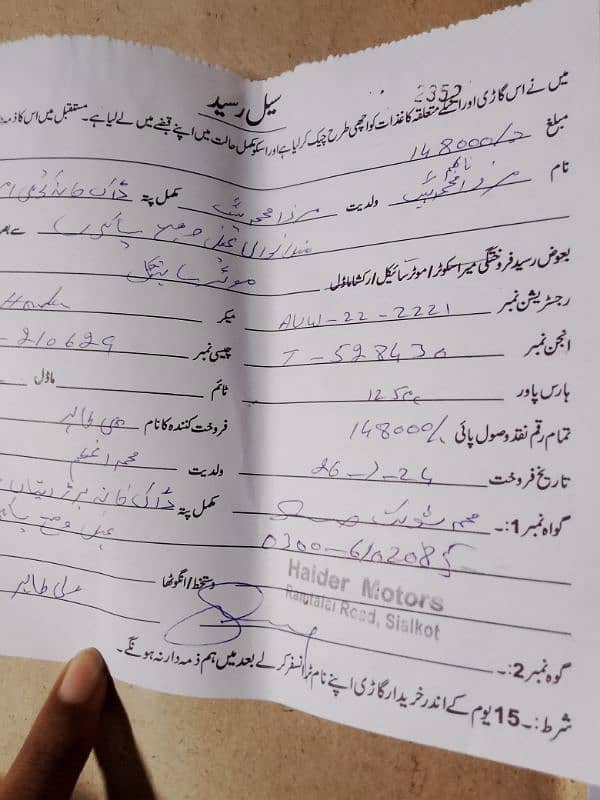 سیل رسید
2352
میں نے اس گاڑی اور اسکے متعلقہ کاغذات کو اچھی طرح چیک کر لیا ہے اور اسکو مکمل حالت میں اپنے قبضے میں لے لیا ہے۔ مستقبل میں اس کا ذمہ
مبلغ 148000/-
نام ولدیت مکمل پتہ ڈاک خانہ
بعوض رسید فروختگی میرا سکوٹر/موٹر سائیکل/رکشا ماڈل موٹر سائیکل
رجسٹریشن نمبر AUW-22-2221 میکر Honda
انجن نمبر T-528430 چیسی نمبر -210629
ہارس پاور 125cc ٹائم ماڈل
تمام رقم نقد وصول پائی 148000/- فروخت کنندہ کا نام علی طاہر
تاریخ فروخت 26-7-24 ولدیت محمد اعظم
گواہ نمبر 1:۔ مکمل پتہ ڈاک خانہ
0300-6102085
Haider Motors
Ramtalai Road, Sialkot
گوہ نمبر 2:۔ دستخط/انگوٹھا علی طاہر
شرط:۔ 15 یوم کے اندر خریدار گاڑی اپنے نام ٹرانسفر کرلے بعد میں ہم ذمہ دار نہ ہونگے۔